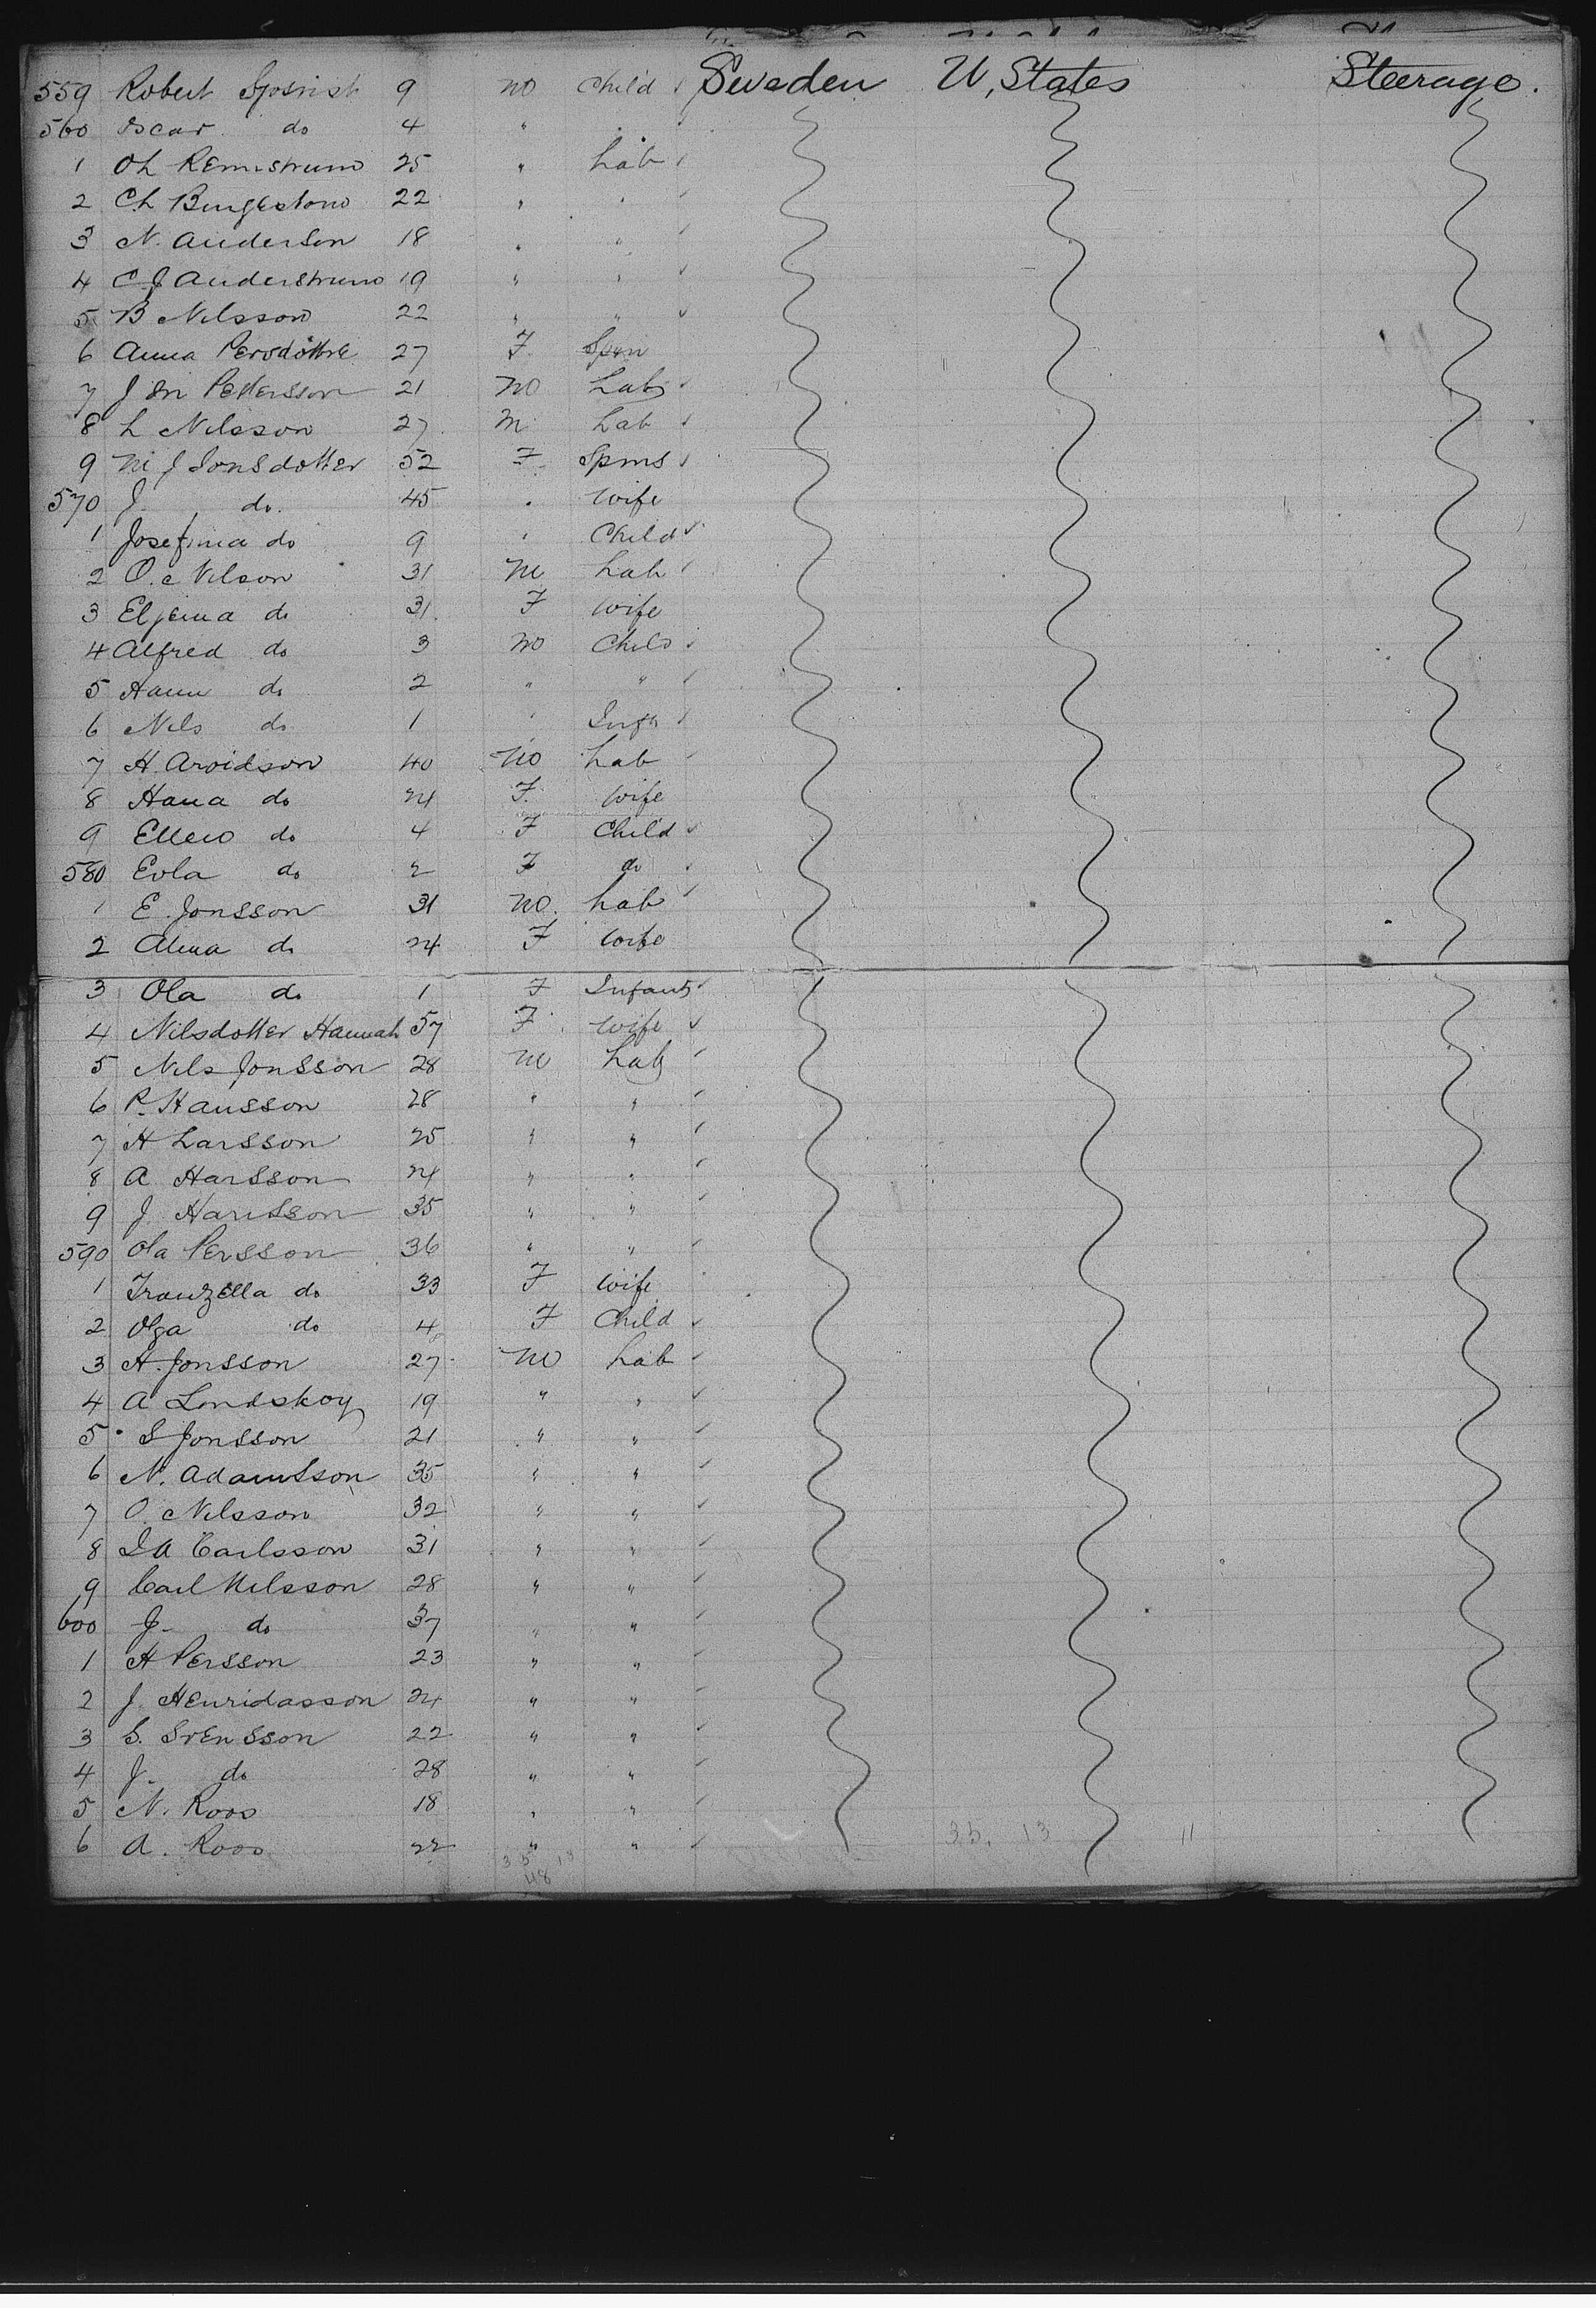 559 Robert 9 m Child Sweden U, States Steerage.
560 Oscar do 4 " "
1 25 " Lab
2 Ch 22 " "
3 N. Anderson 18 " "
4 C J 19 " "
5 B Nilsson 22 " "
6 Anna 27 F. Spin
7 J M Pettersson 21 m Lab
8 L Nilsson 27 m Lab
9 M J Jonsdotter 52 F Spins
570 J. do. 45 " Wife
1 Josefina do 9 " Child
2 O. Nilson 31 m Lab
3 do 31 F Wife
4 Alfred do 3 m Child
5 do 2 " "
6 Nils do 1 " Inft
7 H. Arvidson 40 m Lab
8 Hana do 24 F. Wife
9 Ellen do 4 F Child
580 Evla do 2 F do
1 E. Jonsson 31 m. Lab
2 Alma do 24 F Wife
3 Ola do 1 F Infant
4 Nilsdotter Hannah 57 F. Wife
5 Nils Jonsson 28 m Lab
6 P. Hansson 28 " "
7 H Larsson 25 " "
8 A Hansson 24 " "
9 J. Hansson 35 " "
590 Ola Persson 36 " "
1 Franzella do 33 F Wife
2 Olga do 4 F Child
3 A. Jonsson 27 m Lab
4 A Lindskog 19 " "
5 S Jonsson 21 " "
6 N. Adamsson 35 " "
7 O. Nilsson 32 " "
8 I A Carlsson 31 " "
9 Carl Nilsson 28 " "
600 J. do 37 " "
1 A Persson 23 " "
2 J. Henridasson 24 " "
3 S. Svensson 22 " "
4 J. do 28 " "
5 N. Roos 18 " "
6 A. Roos 22 " " 35, 13 11
35 13
48